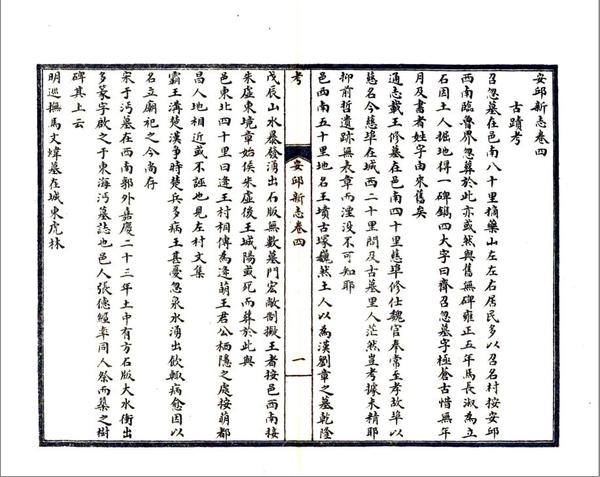 安邱新志卷四
古蹟考
召忽墓在邑南八十里摘藥山左左右居民多以召名村按安邱
西南臨魯界忽葬於此亦或然與舊無碑雍正五年馬長淑為立
石因土人掘地得一碑鐫四大字曰齊召忽墓字極蒼古惜無年
月及書者姓字由來舊矣
通志載王修墓在邑南四十里慈埠修仕魏官奉常至孝故埠以
慈名今慈埠在城西二十里問及古墓里人茫然豈考據未精耶
抑前哲遺跡無表章而湮沒不可知耶
邑西南五十里地名王墳古塚巍然土人以為漢劉章之墓乾隆
考
安邱新志卷四
一
戊辰山水暴發湧出石版無數墓門宏敞制擬王者按邑西南接
朱虛東境章始侯朱虛後王城陽或死而葬於此與
邑東北四十里曰逄王村相傳為逄萌王君公栖隱之處按萌都
昌人地相近或不誣也見左村文集
霸王溝楚漢爭時楚兵多病王甚憂忽泉水湧出飲輒病愈因以
名立廟祀之今尚存
宋于沔墓在西南郭外嘉慶二十三年土中有方石版大水衝出
多篆字啟之于東海沔墓誌也邑人張德經率同人祭而築之樹
碑其上云
明巡撫馬文煒墓在城東虎林